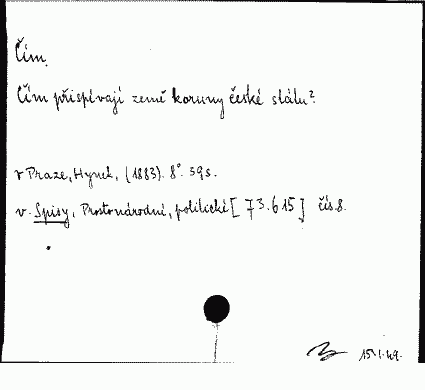 Čím.
Čím přispívají země koruny české státu?
v Praze, Hynek, (1883). 8°. 39s.
v. Spisy, Prostonárodní, politické [73.615] čís. 8.
15.I.49.